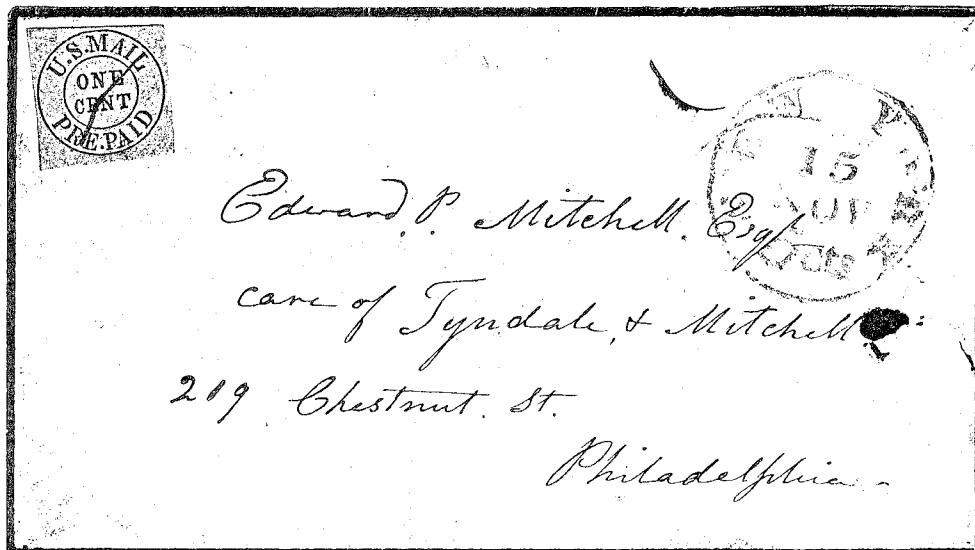 U.S.MAIL
ONE
CENT
PRE-PAID
NEW YORK
15
NOV
Cts
Edward P. Mitchell. Esq
care of Tyndale & Mitchell
219 Chestnut. St.
Philadelphia